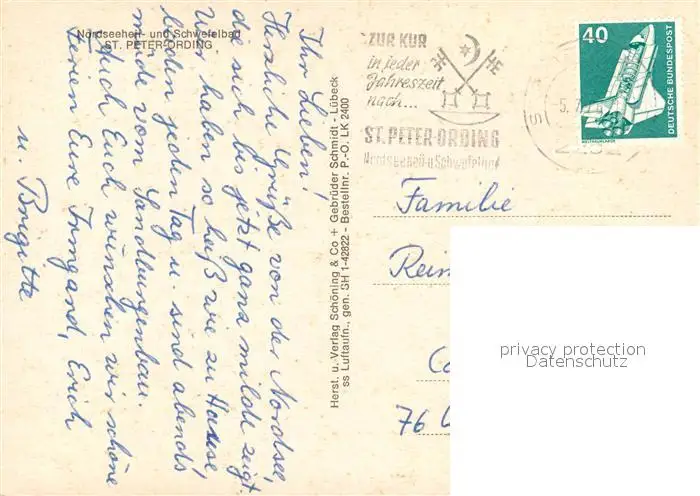 Nordseeheil- und Schwefelbad
ST. PETER-ORDING
Ihr Lieben!
Herzliche Grüße von der Nordsee,
die sich bis jetzt ganz milde zeigt.
Wir haben so heiß wie zu Hause,
baden jeden Tag u. sind abends
müde vom Sandburgenbau.
Auch Euch wünschen wir schöne
Ferien Eure Irmgard, Erich
u. Brigitte
Herst. u. Verlag Schöning & Co + Gebrüder Schmidt - Lübeck
ss Luftaufn., gen. SH 1-42822 - Bestellnr. P.-O. LK 2400
ZUR KUR
in jeder
Jahreszeit
nach...
ST. PETER-ORDING
Nordseeheil- u Schwefelbad
40
DEUTSCHE BUNDESPOST
WELTRAUMLABOR
Familie
Reim
76
privacy protection
Datenschutz